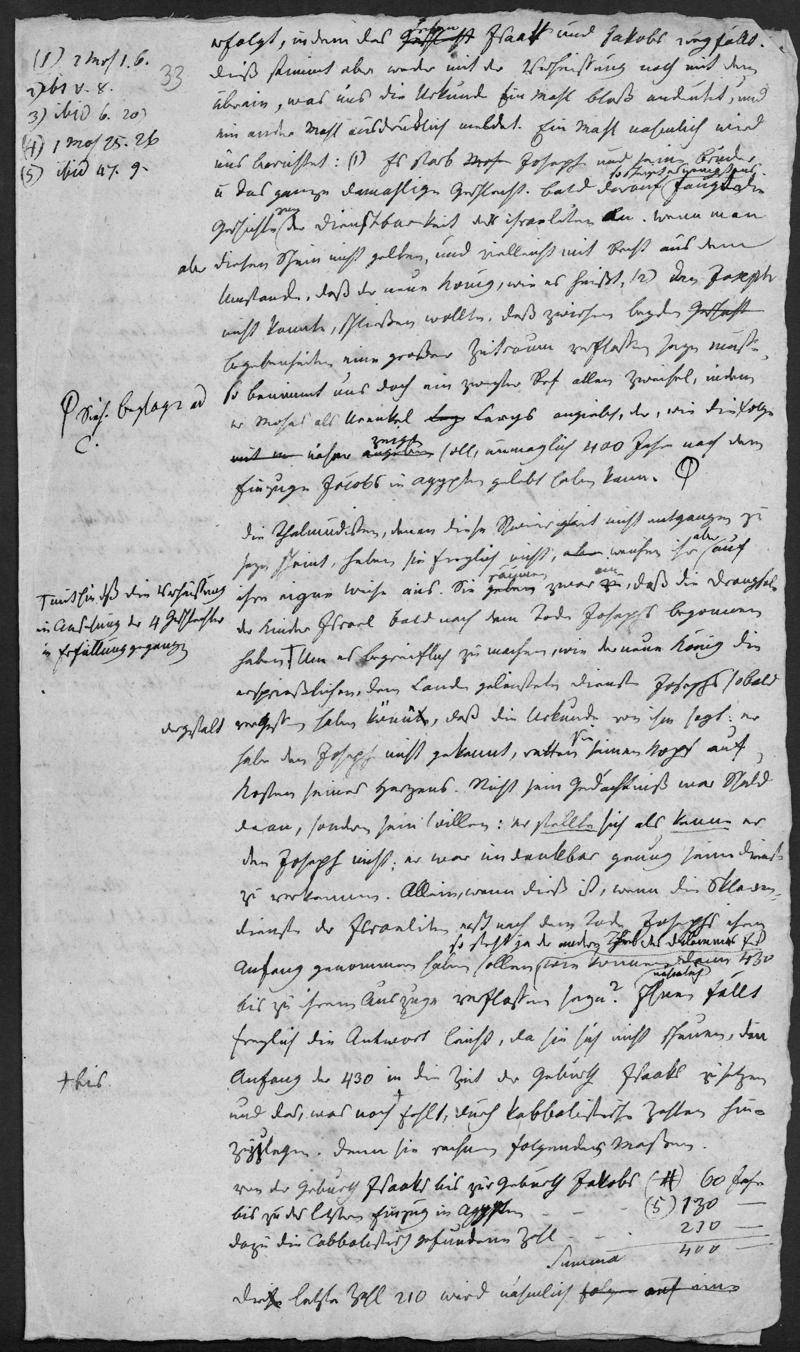 (1) 2 Mos 1. 6.
2) ibid v. 8.
3) ibid 6. 20
(4) 1 Mos 25. 26
(5) ibid 47. 9.
33
erfolgt, indem das Isaak und Jakobs wegfällt.
Dieß stimmt aber weder mit der Verheissung noch mit dem
überein, was uns die Urkunde Ein Mahl bloß andeutet, und
ein ander Mahl ausdrücklich meldet. Ein Mahl nahmlich wird
uns berichtet: (1) Es starb Joseph und seine Brüder
u das ganze damahlige Geschlecht. bald darauf fängt die
Geschichte der Dienstbarkeit der Israeliten an. Wenn man
aber diesen Schein nicht gelten, und vielleicht mit Recht aus dem
Umstande, daß der neue König, wie es heißt, (2) den Joseph
nicht kannte, schließen wollte, daß zwischen beyden
Begebenheiten eine großer Zeitraum verflossen seyn müsse,
so benimmt uns doch ein zweyter Vers allen Zweifel, indem
er Moses als Urenkel Levys angiebt, der, wie die Folge
näher zeigen soll, unmöglich 400 Jahre nach dem
Einzuge Jacobs in Agypten gelebt haben kann.
Sieh. Beylage ad
C.
Die Thalmudisten, denen diese Schwierigkeit nicht entgangen zu
seyn scheint, haben sie freylich nicht, weichen ihr aber auf
ihre eigne Weise aus. Sie räumen zwar ein, daß die Drangsale
der Kinder Israel bald nach dem Tode Josephs begonnen
haben † Um es begreiflich zu machen, wie der neue König die
† mithin daß die Verheissung
in Ansehung der 4 Geschlechter
in Erfüllung gegangen
ersprießlichen, dem Lande geleisteten Dienste Josephs sobald
dergestalt vergessen haben könnte, daß die Urkunde von ihm sagt: er
habe den Joseph nicht gekannt, retten sie seinen Kopf auf
Kosten seines Herzens. Nicht sein Gedächtniß war Schuld
daran, sondern sein Willen: er stellte sich als kenne er
den Joseph nicht; er war undankbar genug seine Dienste
zu verkennen. Allein, wenn dieß ist, wenn die Sklaven-
dienste der Israeliten erst nach dem Tode Josephs ihren
so steht ja der andere Theil des Dilemmas fest
Anfang genommen haben sollen, wie können dann 430
bis zu ihrem Auszuge verflossen seyn? Ihnen fällt
freylich die Antwort leicht, da sie sich nicht scheuen, den
Anfang der 430 in die Zeit der Geburth Isaaks zu setzen
† bis
und das, was noch fehlt, durch kabbalistische Zahlen hin-
zuzulegen. Denn sie rechnen folgender Maßen.
von der Geburth Isaaks bis zur Geburth Jakobs (4) 60 Jahr
bis zu des letztern Einzug in Agypten - - (5) 130 —
dazu die cabbalistisch gefundene Zahl - - 210 —
Summa 400 —
Diese letzte Zahl 210 wird nähmlich folgen auf eine